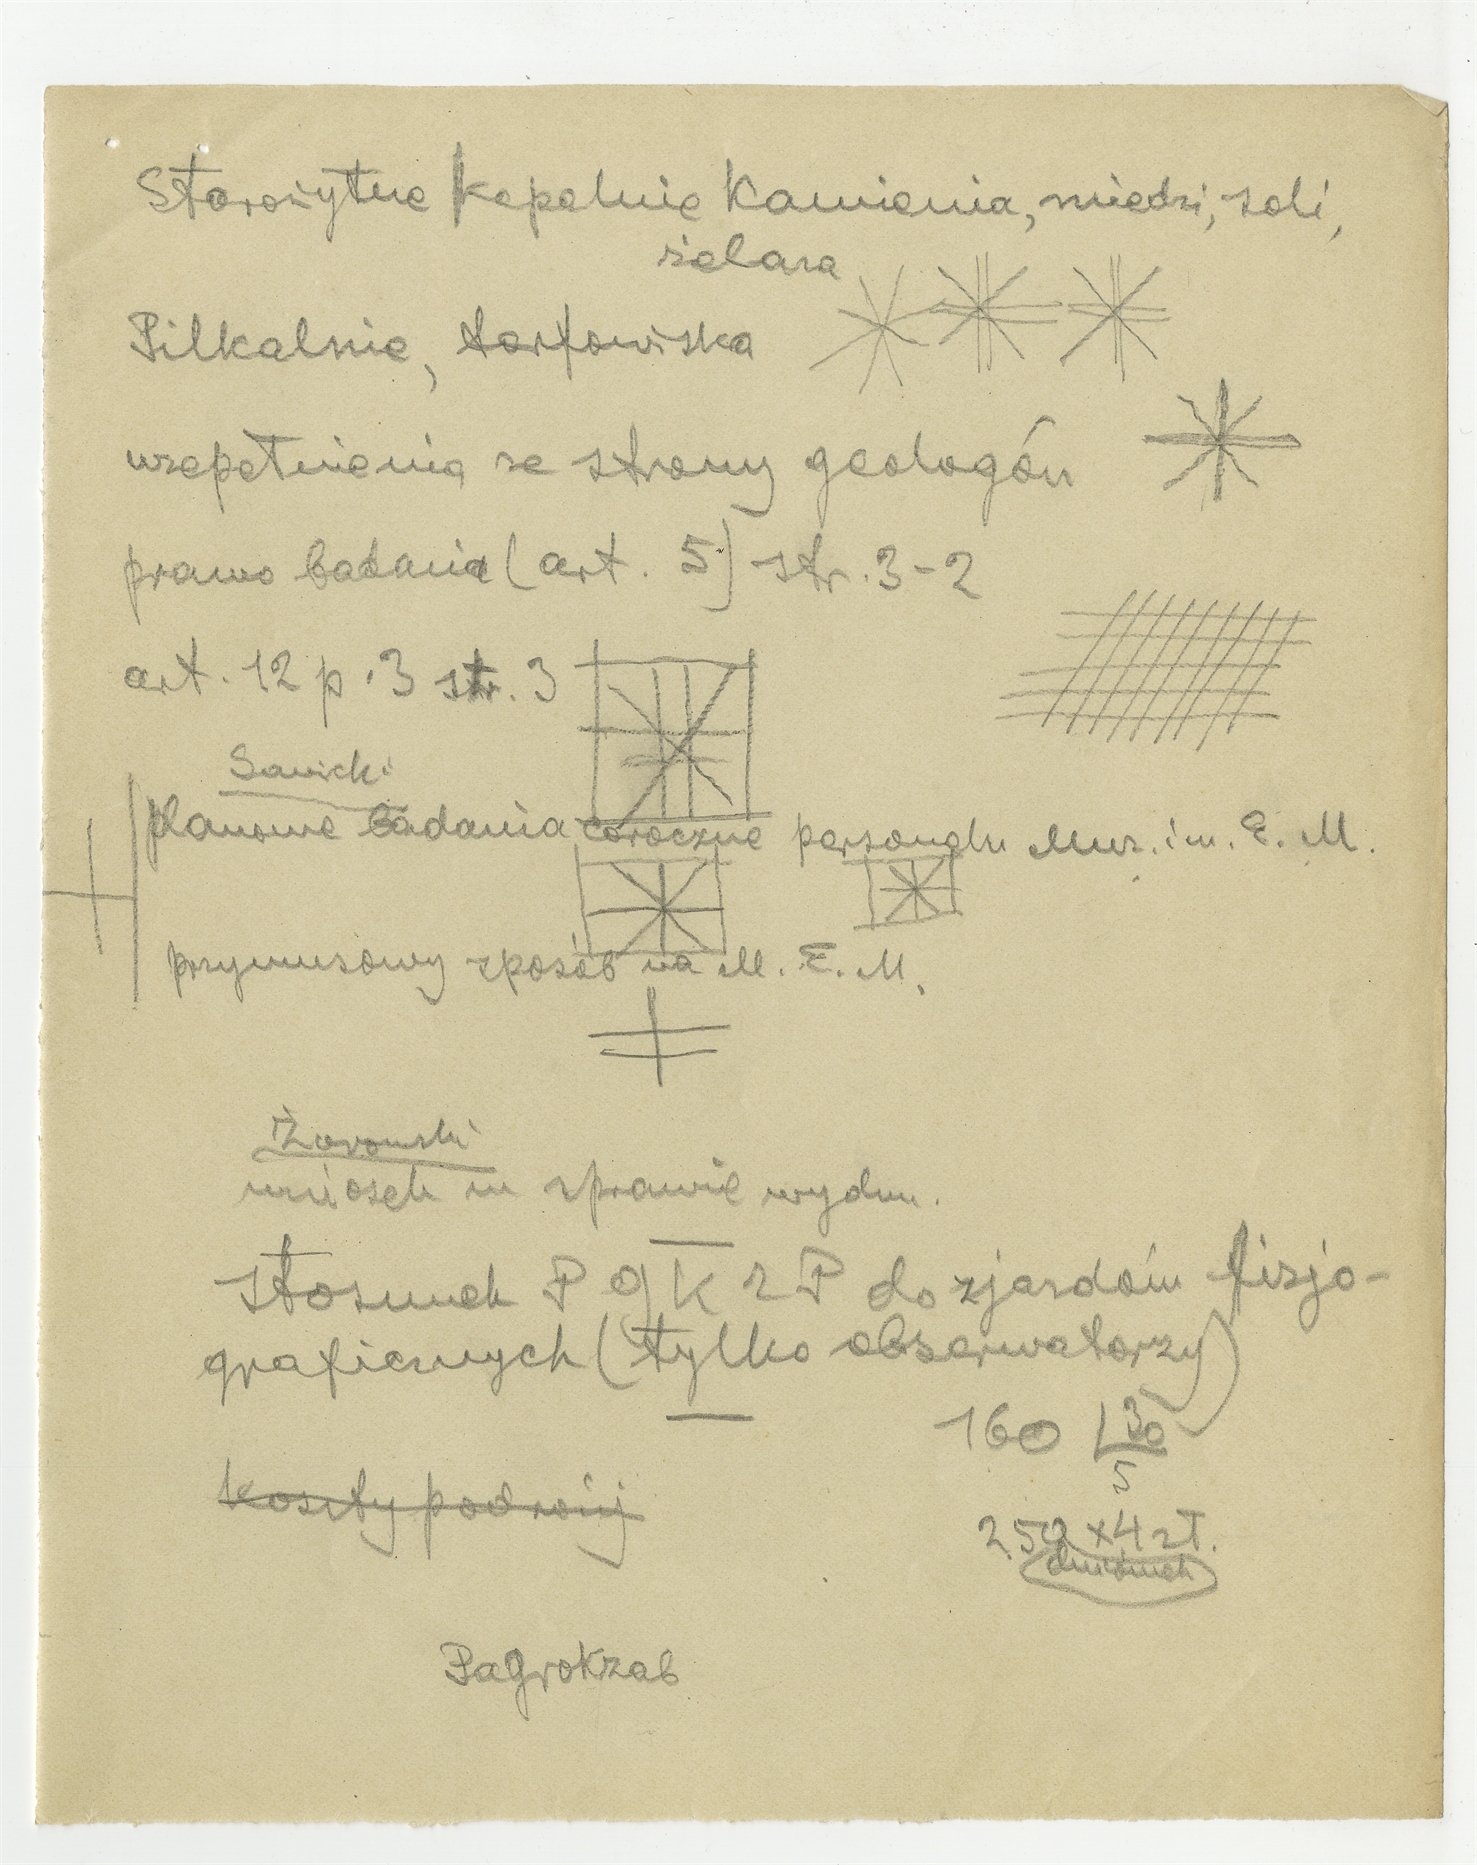 Starożytne kopalnie Kamienia, miedzi, soli,
żelaza
Pilkalnie, torfowiska
uzupełnienia ze strony geologów
prawo badania (art. 5) str. 3-2
art. 12 p. 3 str. 3
Sawicki
planowe badania coroczne personelu Muz. im. E. M.
przymusowy sposób na M. E. M.
Żurowski
wniosek w sprawie wydm.
Stosunek P g K z P do zjazdów fizjo-
graficznych (tylko obserwatorzy)
160 30
5
koszty podróży
250 x 4 zł.
dniówek
Pagrokzab